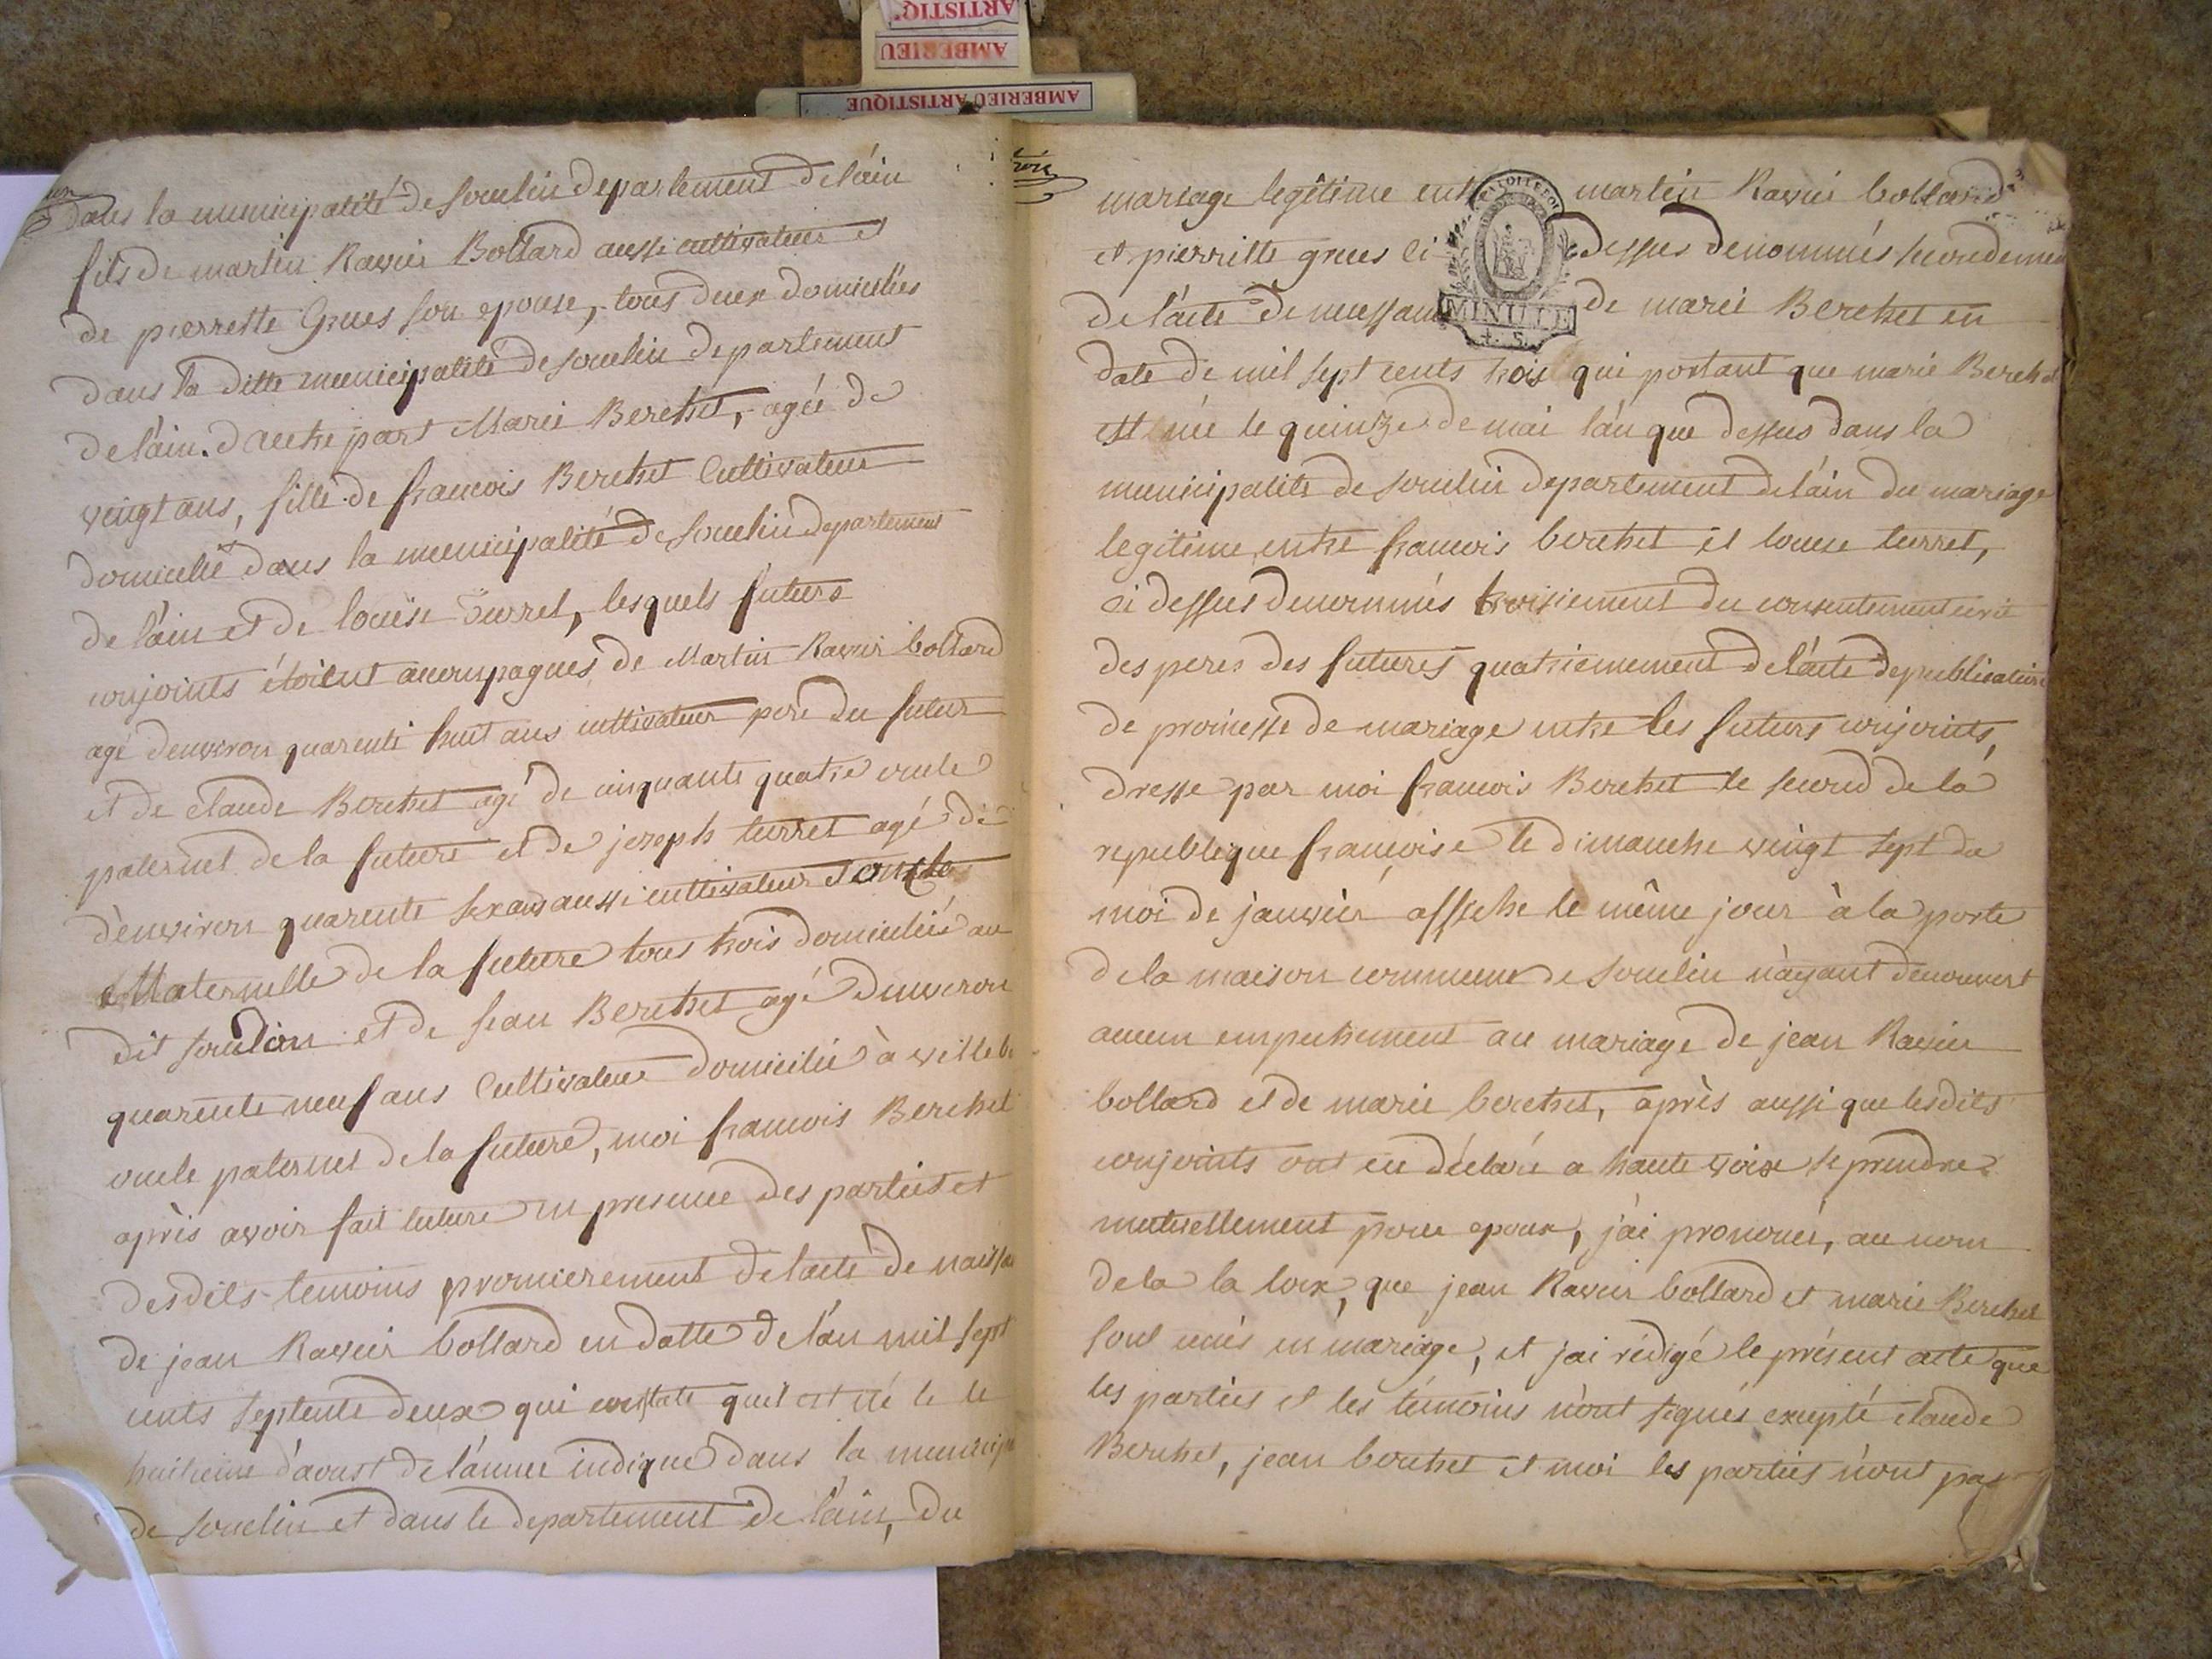 ARTISTIQ
AMBERIEU
AMBERIEU ARTISTIQUE
dans la municipalité de souclin departement de láin
fils de martin Ravier Bollard aussi cultivateur et
de pierrette Grues son epouse, tous deux domiciliés
dans la ditte municipalité de souclin departement
de láin. d'autre part Marie Berchet, agée de
vingt ans, fille de francois Berchet Cultivateur
domicilié dans la municipalité de souclin departement
de láin et de louise Turrel, lesquels futurs
conjoints étoient accompagnés de Martin Ravier bollard
agé d'environ quarente huit ans cultivateur pere du futur
et de claude Berchet agé de cinquante quatre oncle
paternel de la future et de joseph turrel agé de
d'environ quarente six ans aussi cultivateur oncle
Maternelle de la future tous trois domiciliés au
dit souclin et de jean Berchet agé d'environ
quarente neuf ans Cultivateur domicilié à villeb
oncle paternel de la future, moi francois Berchet
après avoir fait lecture en presence des parties et
desdits temoins premierement de lacte de naissa
de jean Ravier bollard en datte de lán mil sept
cents septente deux qui constate quil est né le le
huitieme d'aoust de lánnee indiqué dans la municipa
de souclin et dans le departement de láin, du
mariage legitime ent martin Ravier bollard
et pierrette grues ci dessus denommés secondeme
de lácte de naissan de marie Berchet en
date de mil sept cents trois qui portant que marie Berchet
est née le quinze de mai lán que dessus dans la
municipalité de souclin departement de láin du mariage
legitime entre francois berchet et louise turrel,
ci dessus denommés troisiement du consentement écrit
des peres des futures quatriemement de lácte de publication
de promesse de mariage entre les futurs conjoints,
dresse par moi francois Berchet le second de la
republique francoise le dimanche vingt sept du
moi de janvier affiche le même jour à la porte
de la maison commune de souclin náyant decouvert
aucun empechement au mariage de jean Ravier
bollard et de marie berchet, après aussi que lesdits
conjoints ont eu déclaré a haute voix se prendre
mutuellement pour epoux, j'ai prononcé, au nom
de la la loix, que jean Ravier bollard et marie Berchet
sont unis en mariage, et j'ai rédigé le présent acte que
les parties et les témoins n'ont signés excepté claude
Berchet, jean berchet et moi les parties n'ont pas
MINUTE